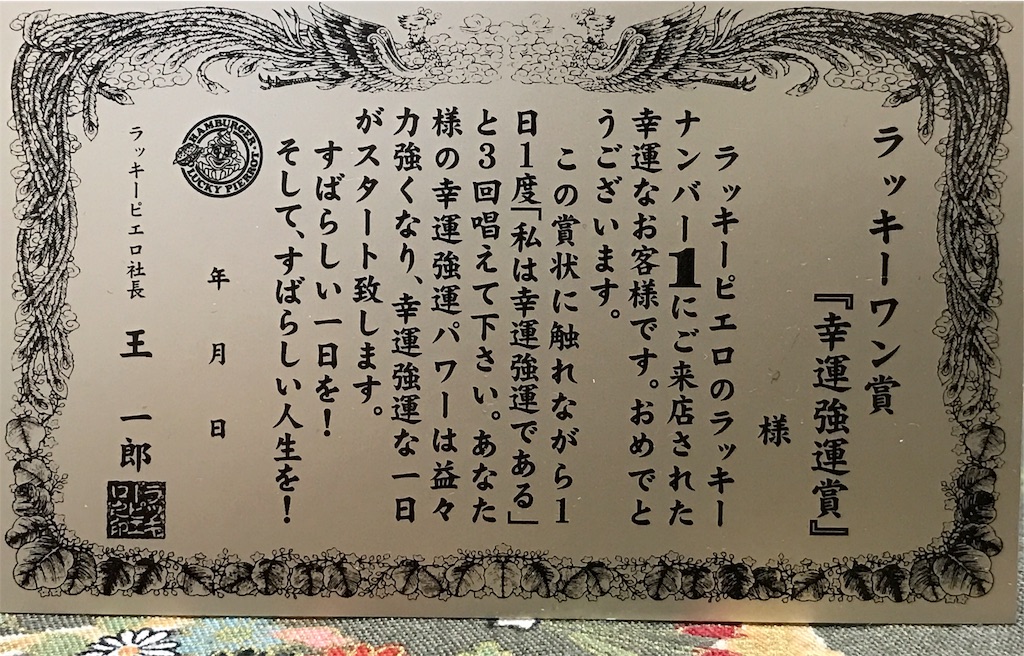 ラッキーワン賞
『幸運強運賞』
様
ラッキーピエロのラッキー
ナンバー1にご来店された
幸運なお客様です。おめでと
うございます。
この賞状に触れながら1
日1度「私は幸運強運である」
と3回唱えて下さい。あなた
様の幸運強運パワーは益々
力強くなり、幸運強運な一日
がスタート致します。
すばらしい一日を!
そして、すばらしい人生を!
HAMBURGER
LUCKY PIERROT
年 月 日
ラッキーピエロ社長 王 一郎